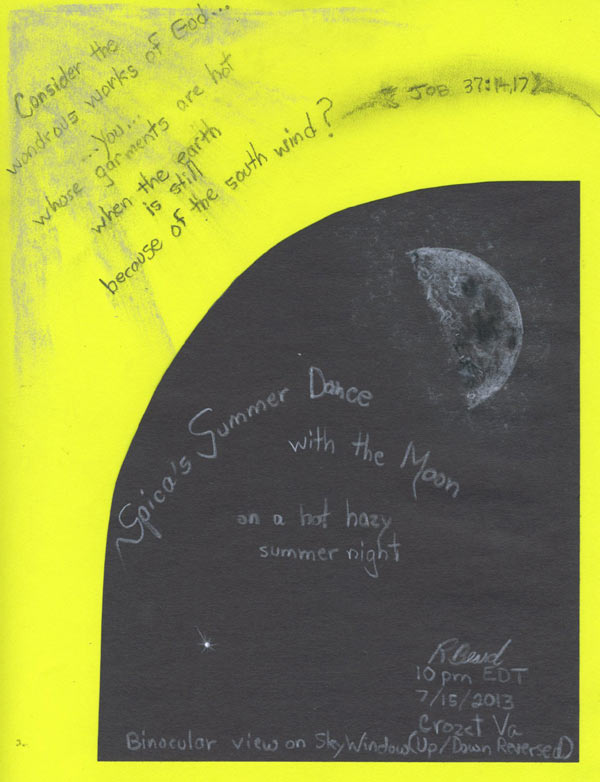 Consider the
wondrous works of God...
...You...
whose garments are hot
when the earth
is still
because of the south wind?
JOB 37:14,17
Spica's Summer Dance
with the Moon
on a hot hazy
summer night
10 pm EDT
7/15/2013
Crozet Va
Binocular view on SkyWindow (Up/Down Reversed)